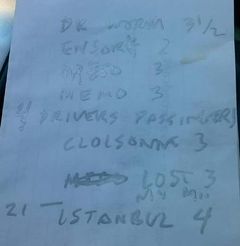 DR WORM 3 1/2
ENSOR 2
3
MEMO 3
DRIVERS PASSENGERS
CLOISONNE 3
LOST 3
MY MII
21 - ISTANBUL 4